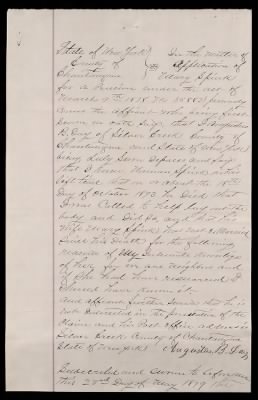 State of New York } In the matter of
County of } SS Application of
Chautauqua } Mary Spink
for a Pension under the act of
March 9th 1878
came the affiant who being first
Sworn on Oath Says that Augustus
B. Day of Silver Creek County of
Chautauqua and State of New York
being duly Sworn Deposes and Says
that I knew Thomas Spink in his
life time that on or about the 18th
Day of October 1853 he Died that I
was Called to help lay out the
body and Did So, and that his
wife Mary Spink has not Remarried
Since his Death for the following
reasons of My Intimate knowledge
of her for we are neighbors and
if She had have remarried I
Should have known it
And affiant further Swears that he is
not Interested in the prosecution of the
Claim and his Post office address is
Silver Creek County of Chautauqua
State of New York Augustus B. Day
Subscribed and Sworn to before me
this 28th Day of May 1879